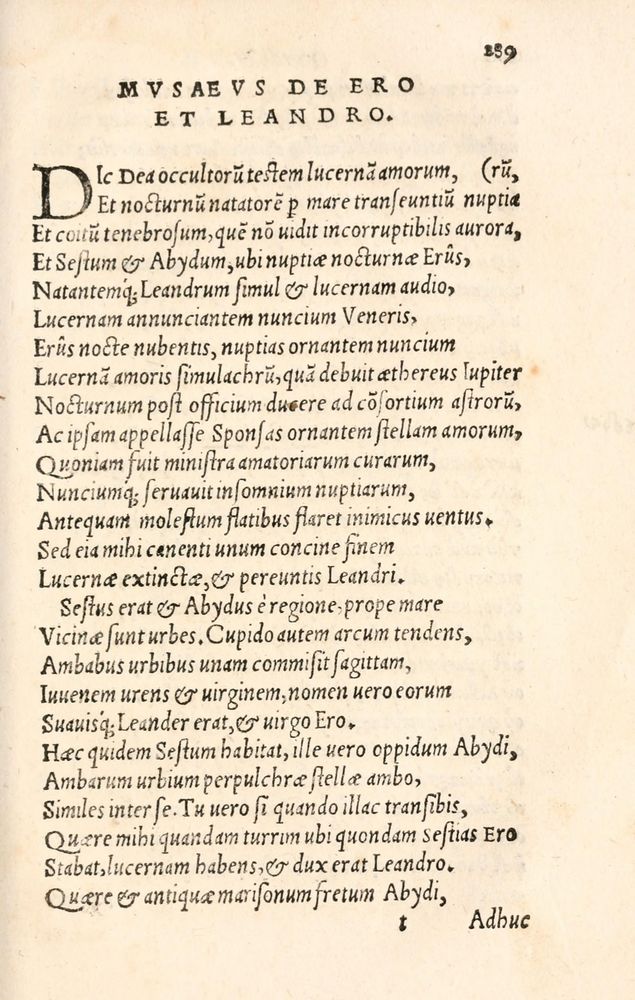 289
MVSAEVS DE ERO
ET LEANDRO.
DIc Dea occultorũ testem lucernã amorum, (rũ,
Et nocturnũ natatorẽ p̱ mare transeuntiũ nuptia
Et coitũ tenebrosum, quẽ nõ uidit incorruptibilis aurora,
Et Sestum & Abydum, ubi nuptiæ nocturnæ Erûs,
Natantemq́; Leandrum simul & lucernam audio,
Lucernam annunciantem nuncium Veneris,
Erûs nocte nubentis, nuptias ornantem nuncium
Lucernã amoris simulachrũ, quã debuit æthereus Iupiter
Nocturnum post officium ducere ad cõsortium astrorũ,
Ac ipsam appellasse Sponsas ornantem stellam amorum,
Quoniam fuit ministra amatoriarum curarum,
Nunciumq́; seruauit insomnium nuptiarum,
Antequam molestum flatibus flaret inimicus uentus.
Sed eia mihi canenti unum concine finem
Lucernæ extinctæ, & pereuntis Leandri.
Sestus erat & Abydus è regione, prope mare
Vicinæ sunt urbes. Cupido autem arcum tendens,
Ambabus urbibus unam commisit sagittam,
Iuuenem urens & uirginem, nomen uero eorum
Suauisq́; Leander erat, & uirgo Ero.
Hæc quidem Sestum habitat, ille uero oppidum Abydi,
Ambarum urbium perpulchræ stellæ ambo,
Similes inter se. Tu uero si quando illac transibis,
Quære mihi quandam turrim ubi quondam Sestias Ero
Stabat, lucernam habens, & dux erat Leandro.
Quære & antiquæ marisonum fretum Abydi,
t Adhuc